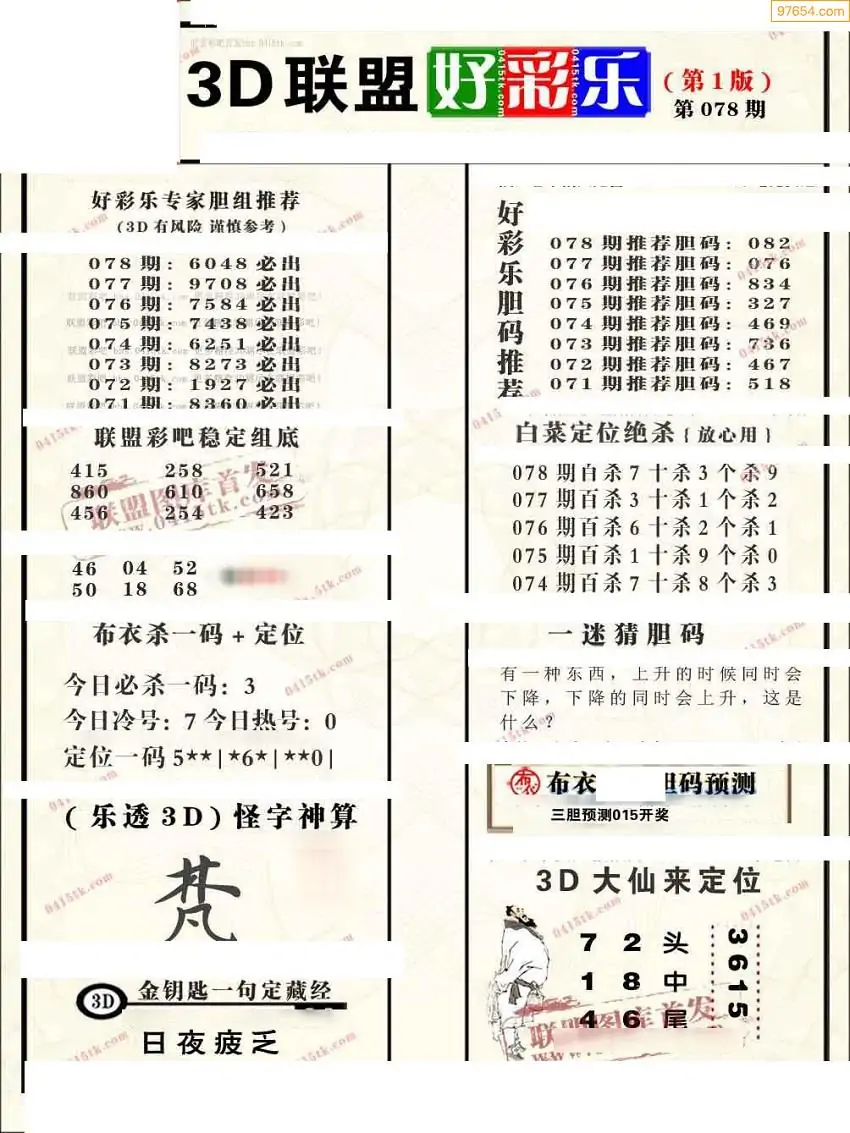 97654.com
3D联盟 好彩乐 (第1版)
第078期
好彩乐专家胆组推荐
(3D有风险 谨慎参考)
078期: 6048必出
077期: 9708必出
076期: 7584必出
075期: 7438必出
074期: 6251必出
073期: 8273必出
072期: 1927必出
071期: 8360必出
联盟彩吧稳定组底
415 258 521
860 610 658
456 254 423
46 04 52
50 18 68
布衣杀一码+定位
今日必杀一码: 3
今日冷号: 7 今日热号: 0
定位一码5**|*6*|**0|
(乐透3D)怪字神算
梵
3D 金钥匙一句定藏经
日夜疲乏
好彩乐胆码推荐
078期推荐胆码: 082
077期推荐胆码: 076
076期推荐胆码: 834
075期推荐胆码: 327
074期推荐胆码: 469
073期推荐胆码: 736
072期推荐胆码: 467
071期推荐胆码: 518
白菜定位绝杀{放心用}
078期百杀7十杀3个杀9
077期百杀3十杀1个杀2
076期百杀6十杀2个杀1
075期百杀1十杀9个杀0
074期百杀7十杀8个杀3
一迷猜胆码
有一种东西，上升的时候同时会
下降，下降的同时会上升，这是
什么?
布衣 胆码预测
三胆预测015开奖
3D大仙来定位
7 2 头
1 8 中
4 6 尾
3615
联盟图库首发
www.0415tk.com
联盟图库首发
0415tk.com